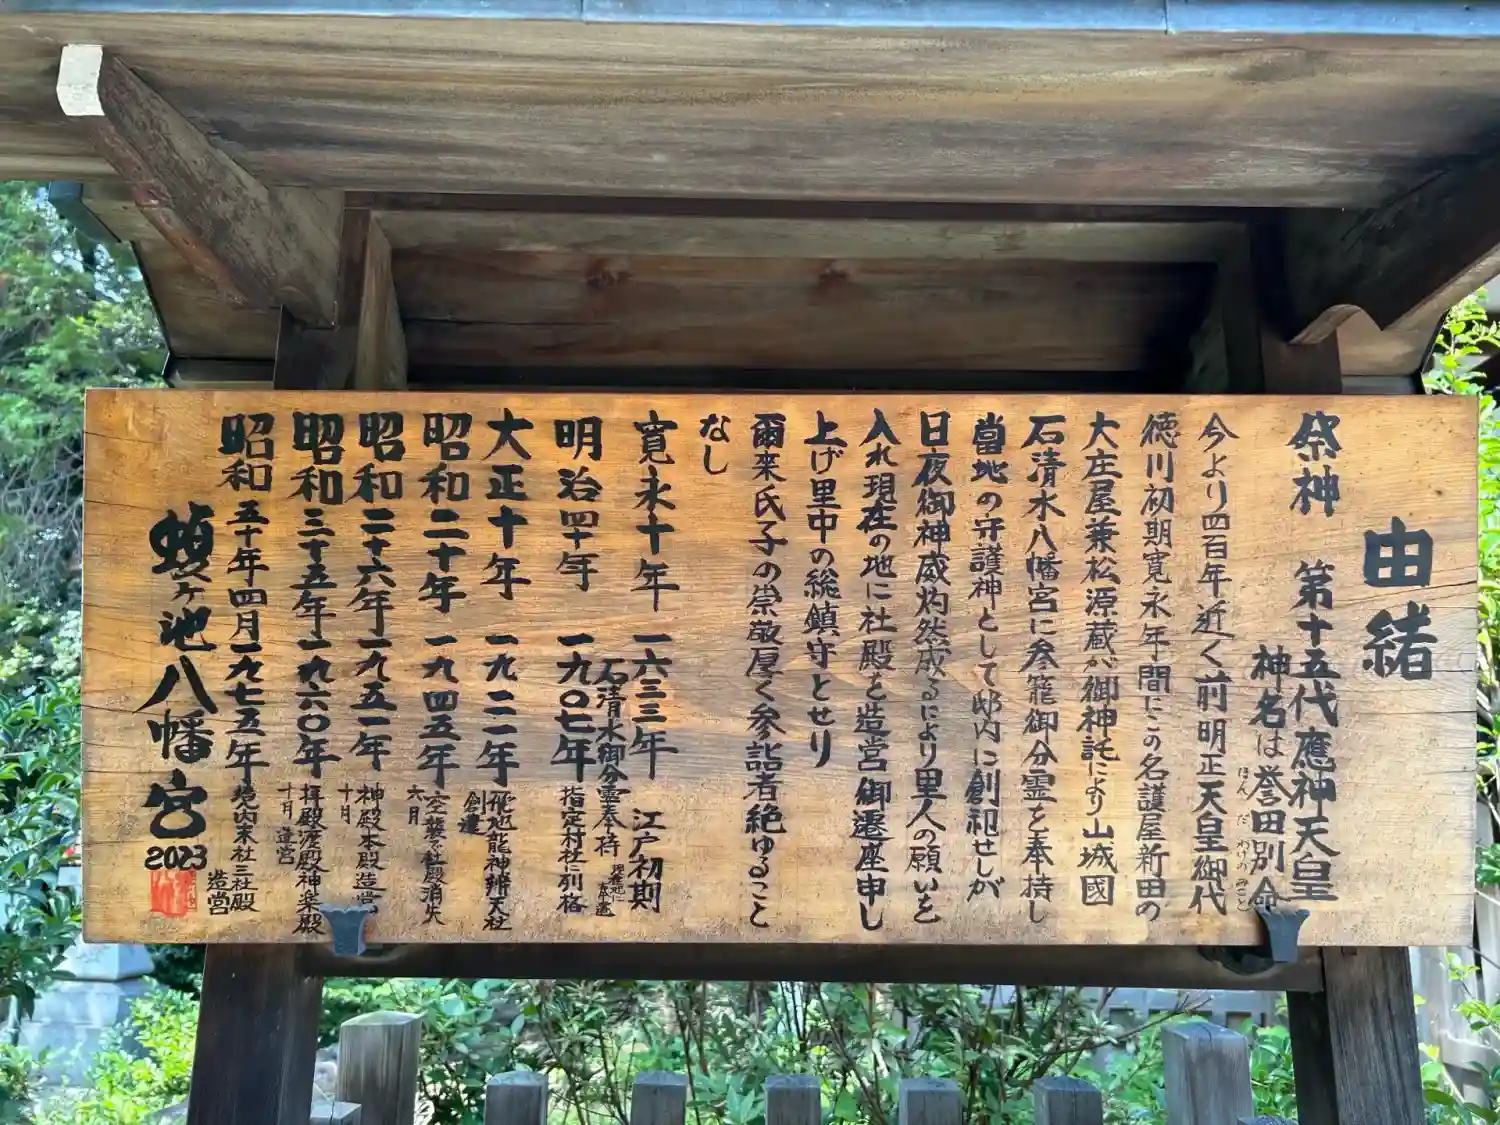 由緒
祭神　第十五代應神天皇
神名は誉田別命
ほんだわけのみこと
今より四百年近く前明正天皇御代
徳川初期寛永年間にこの名護屋新田の
大庄屋兼松源蔵が御神託により山城國
石清水八幡宮に参籠御分霊を奉持し
當地の守護神として邸内に創祀せしが
日夜御神威灼然成るにより里人の願いを
入れ現在の地に社殿を造営御遷座申し
上げ里中の総鎮守とせり
爾来氏子の崇敬厚く参詣者絶ゆること
なし
寛永十年　一六三三年　江戸初期
石清水御分霊奉持
明治四十年　一九〇七年　指定村社に列格
大正十年　一九二一年　飛地龍神辨天社
創建
昭和二十年　一九四五年　空襲で社殿消失
六月
昭和二十六年　一九五一年　神殿本殿造営
十月
昭和三十五年　一九六〇年　拝殿渡殿神楽殿
十月　造営
昭和五十年四月　一九七五年　境内末社三社殿
造営
八幡宮
2023